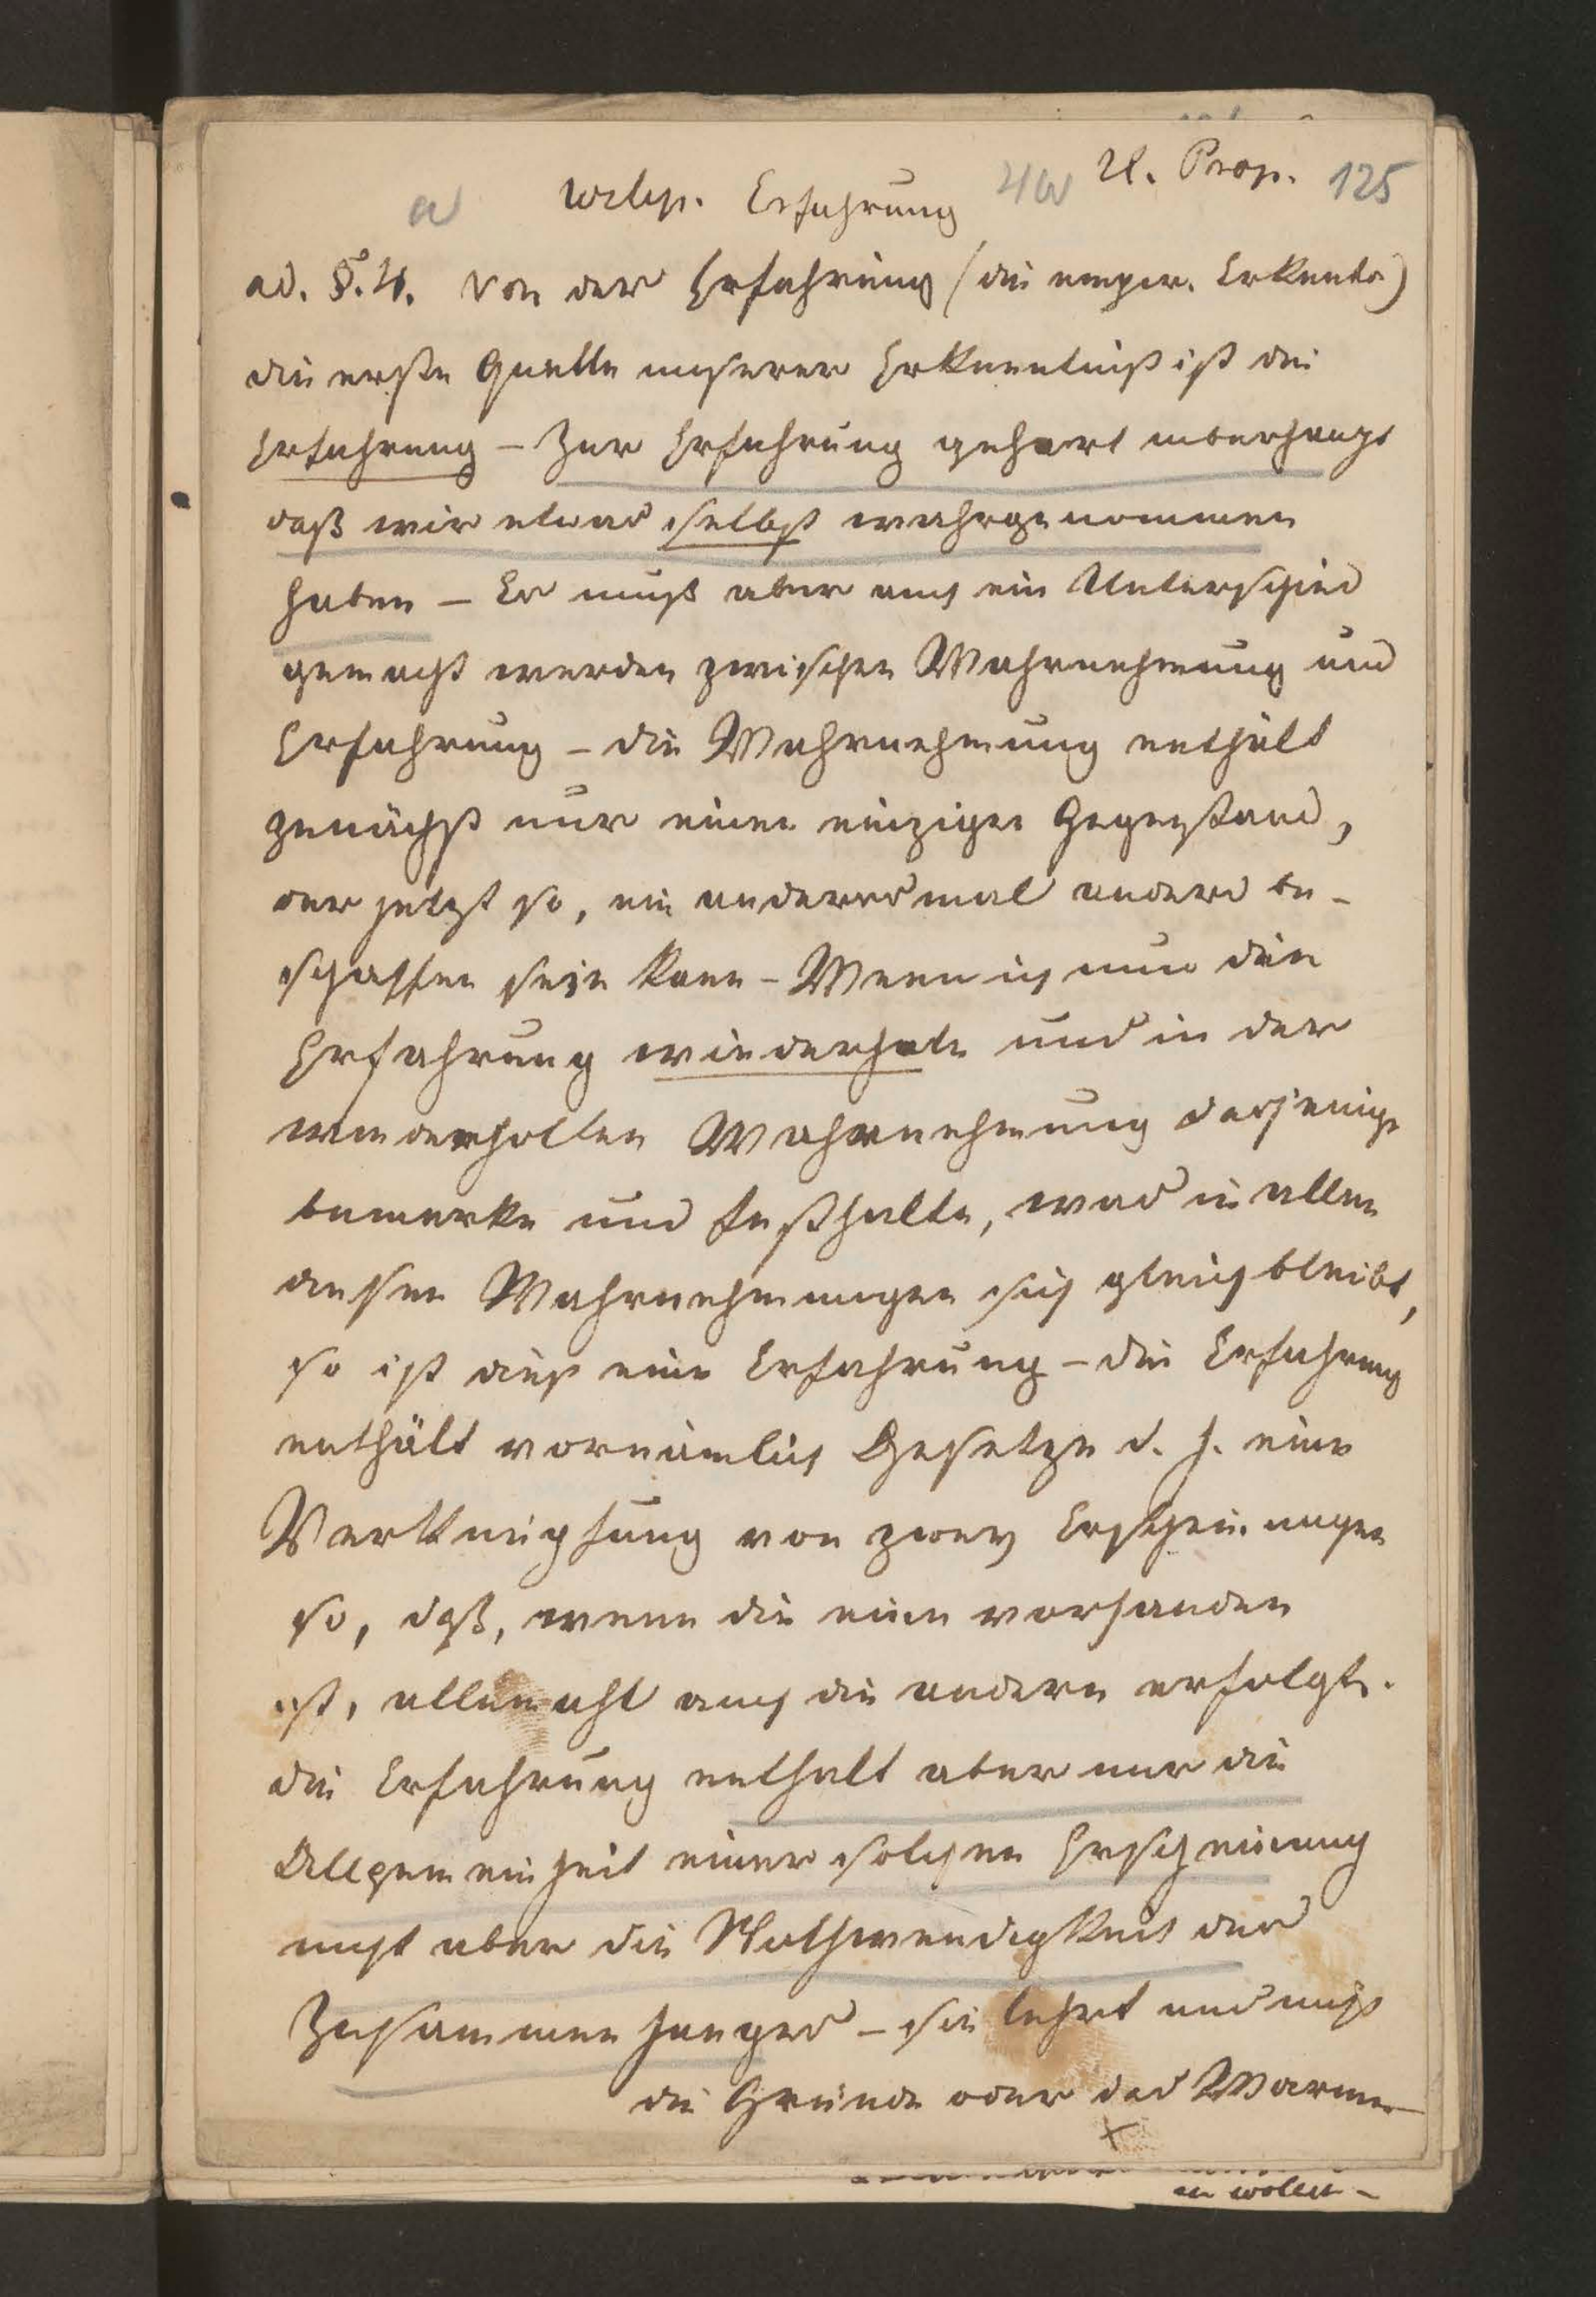 a Erfahrung 4a U. Prop. 125
ad. §. 4. Von der Erfahrung (die emp. Erkentn)
die erste Quelle unserer Erkenntniß ist die
Erfahrung – Zur Erfahrung gehört überhaupt
daß wir etwas selbst wahrgenommen
haben – Es muß aber auch ein Unterschied
gemacht werden zwischen Wahrnehmung und
Erfahrung – die Wahrnehmung enthält
zunächst nur einen einzigen Gegenstand,
der jetzt so, ein anderesmal anders be-
schaffen sein kann – Wenn ich nun die
Erfahrung wiederhole und in der
wiederholten Wahrnehmung dasjenige
bemerke und festhalte, was in allen
diesen Wahrnehmungen sich gleich bleibt,
so ist dieß eine Erfahrung – die Erfahrung
enthält vornämlich Gesetze d. h. eine
Verknüpfung von zwey Erscheinungen
so, daß, wenn die eine vorhanden
ist, allemahl auch die andere erfolgt.
die Erfahrung enthält aber nur die
Allgemeinheit einer solchen Erscheinung
nicht aber die Nothwendigkeit des
Zusammenhanges – sie lehrt uns nicht
die Gründe oder das Warum –
wollen –